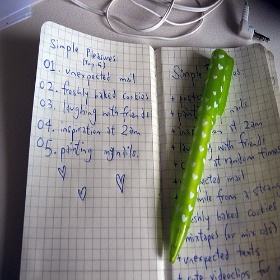 Simple Pleasures
(Top 5)
01. unexpected mail
02. freshly baked cookies
03. laughing with friends
04. inspiration at 2am
05. painting my nails.
Simple
nails
at 2am
with friends
at random times
mail
smile from a
baked cookies
mixtapes (or mix cds)
unexpected texts
cute videoclips